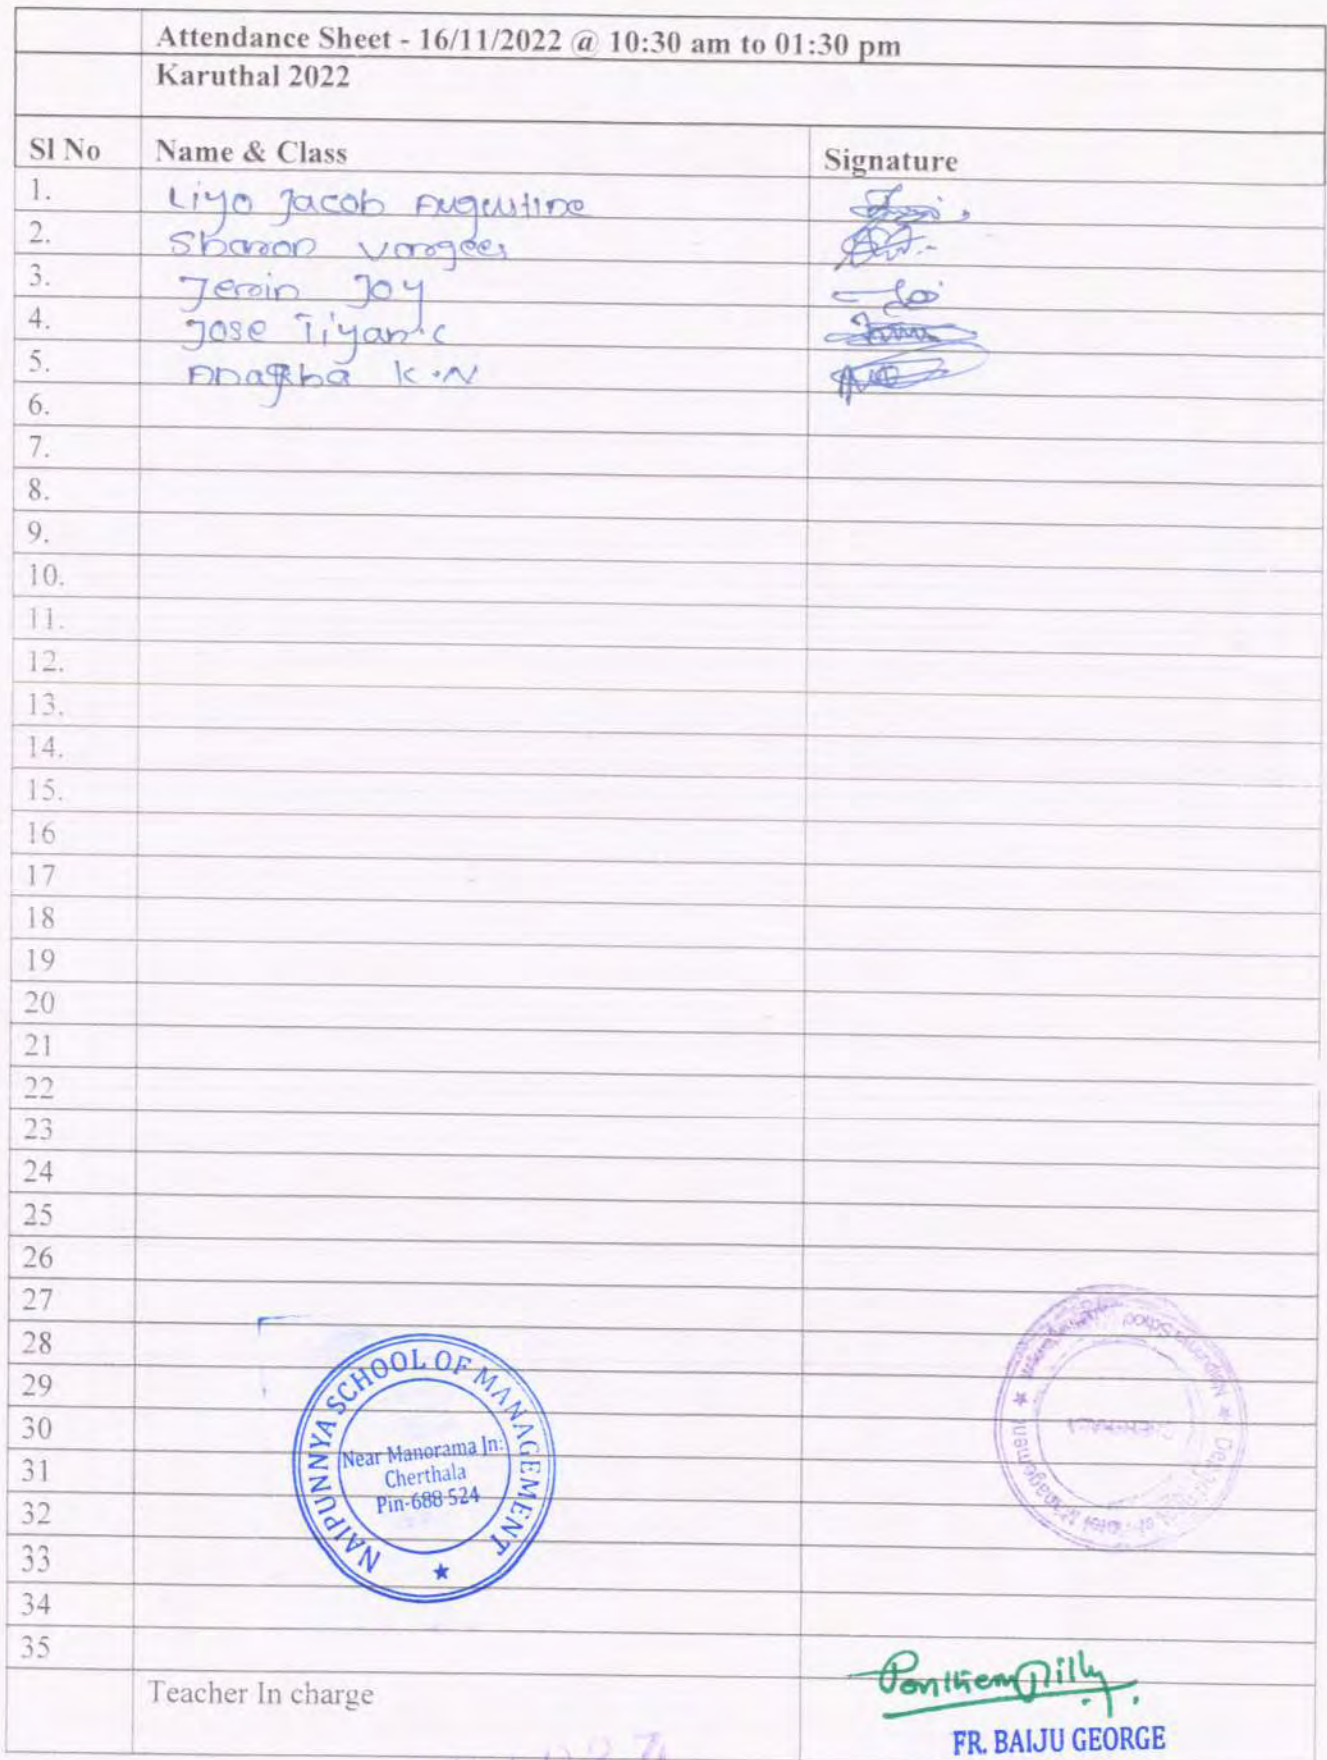 Attendance Sheet - 16/11/2022 @ 10:30 am to 01:30 pm
Karuthal 2022
Sl No Name & Class Signature
1. Liyo Jacob Augustine
2. Sharon Vargees
3. Jerin Joy
4. Jose Tiyan C
5. Anagha K.N
6.
7.
8.
9.
10.
11.
12.
13.
14.
15.
16
17
18
19
20
21
22
23
24
25
26
27
28
29
30
31
32
33
34
35
NAIPUNNYA SCHOOL OF MANAGEMENT
Near Manorama Jn:
Cherthala
Pin-688 524
Teacher In charge
FR. BAIJU GEORGE